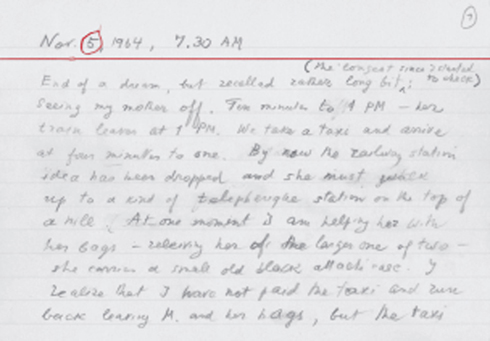 7
Nov. 5, 1964, 7.30 AM
(the longest since I started
to check)
End of a dream, but recalled rather long bit,
Seeing my mother off. Ten minutes to 1 PM – her
train leaves at 1 PM. We take a taxi and arrive
at four minutes to one. By now the railway station
idea has been dropped and she must walk
up to a kind of telepherique station on the top of
a hill. At one moment I am helping her with
her bags – relieving her of the larger one of two –
she carries a small old black attaché case. I
realize that I have not paid the taxi and run
back leaving M. and her bags, but the taxi